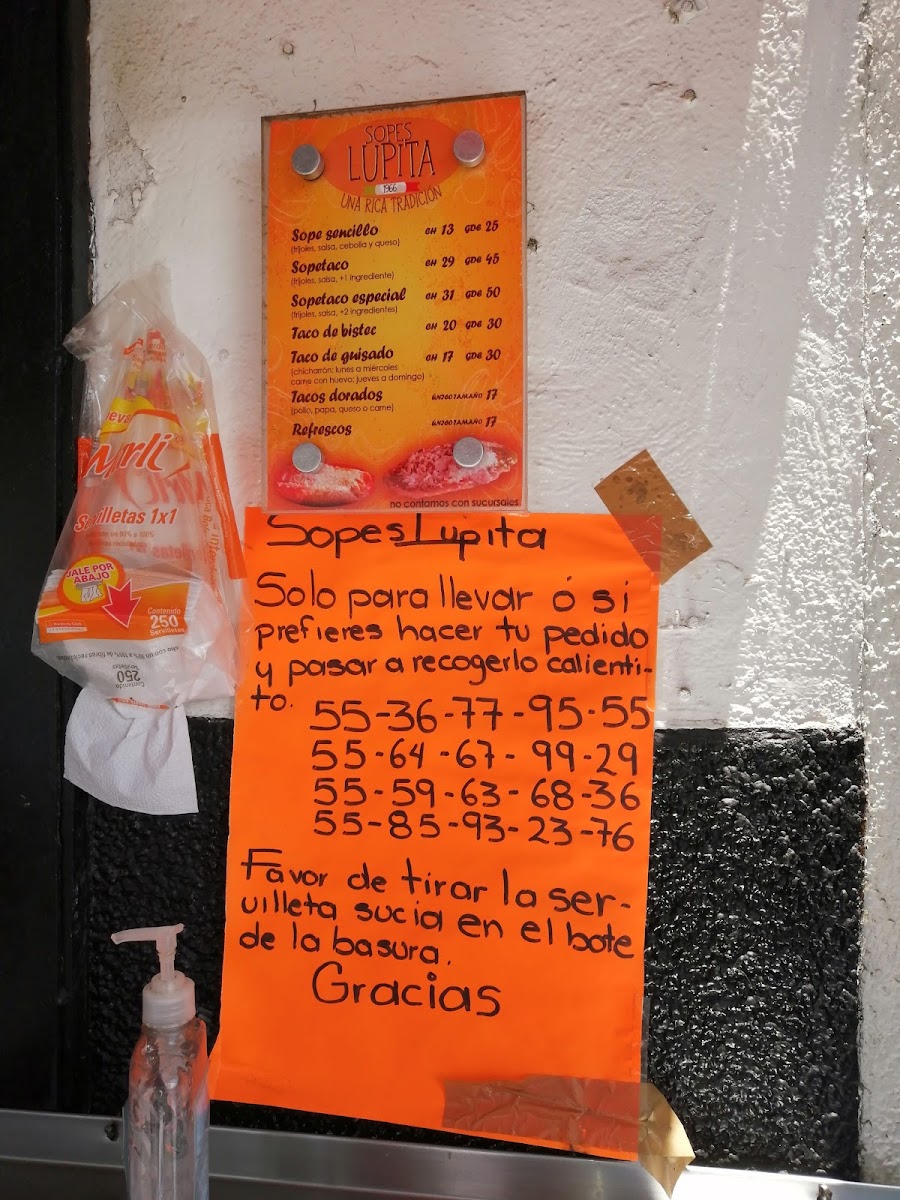 SOPES
LUPITA
1966
UNA RICA TRADICIÓN
Sope sencillo CH 13 GDE 25
(frijoles, salsa, cebolla y queso)
Sopetaco CH 29 GDE 45
(frijoles, salsa, +1 ingrediente)
Sopetaco especial CH 31 GDE 50
(frijoles, salsa, +2 ingredientes)
Taco de bistec CH 20 GDE 30
Taco de guisado CH 17 GDE 30
(chicharrón: lunes a miércoles
carne con huevo: jueves a domingo)
Tacos dorados ÚNICO TAMAÑO 17
(pollo, papa, queso o carne)
Refrescos ÚNICO TAMAÑO 17
no contamos con sucursales
Servilletas 1x1
JALE POR
ABAJO
Contenido
250
Servilletas
Contenido
250
Sopes Lupita
Solo para llevar ó si
prefieres hacer tu pedido
y pasar a recogerlo calienti-
to.
55-36-77-95-55
55-64-67-99-29
55-59-63-68-36
55-85-93-23-76
Favor de tirar la ser-
villeta sucia en el bote
de la basura.
Gracias